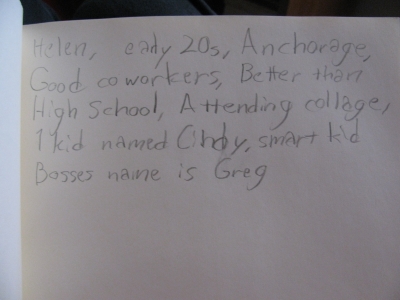 Helen, eady 20s, Anchorage,
Good coworkers, Better than
High School, Attending collage,
1 kid named Cindy, smart kid
Bosses name is Greg